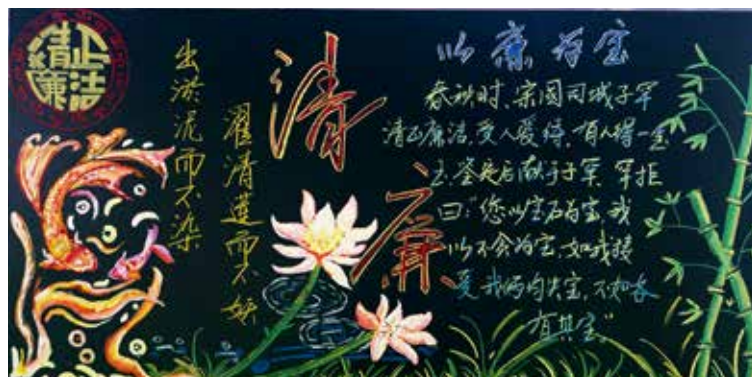 清正
廉洁
出淤泥而不染
濯清莲而不妖
清廉
以廉为宝
春秋时、宋国司城子罕
清正廉洁,受人爱待,有人得一宝
玉,鉴定后献于子罕,罕拒
曰:"您以宝石为宝,我
以不贪为宝,如我接
受,我俩均失宝,不如各
有其宝。"